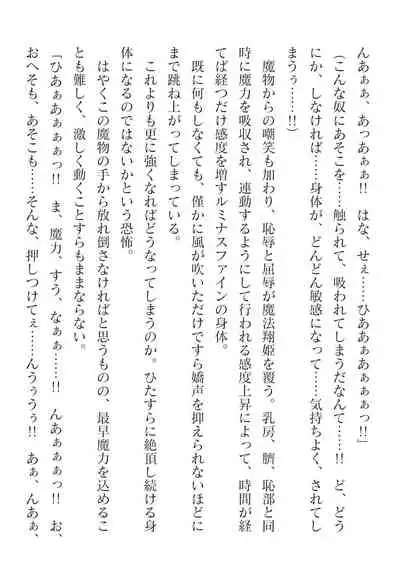 んあぁぁ、あっあぁぁ!! はな、せぇ……ひああぁあぁぁぁっ!!」
(こんな奴にあそこを……触られて、吸われてしまうだなんて……!! ど、どう
にか、しなければ……身体が、どんどん敏感になって……気持ちよく、されてし
まうぅ……!!)
魔物からの嘲笑も加わり、恥辱と屈辱が魔法翔姫を覆う。乳房、臍、恥部と同
時に魔力を吸収され、連動するようにして行われる感度上昇によって、時間が経
てば経つだけ感度を増すルミナスファインの身体。
既に何もしなくても、僅かに風が吹いただけですら嬌声を抑えられないほどに
まで跳ね上がってしまっている。
これよりも更に強くなればどうなってしまうのか。ひたすらに絶頂し続ける身
体になるのではないかという恐怖。
はやくこの魔物の手から放れ倒さなければと思うものの、最早魔力を込めるこ
とも難しく、激しく動くことすらもままならない。
「ひあぁぁあぁぁぁっ!! ま、魔力、すう、なぁぁ……!! んあぁぁぁっ!! お、
おへそも、あそこも……そんな、押しつけてぇ……んうぅうぅ!! あぁ、んあぁ、